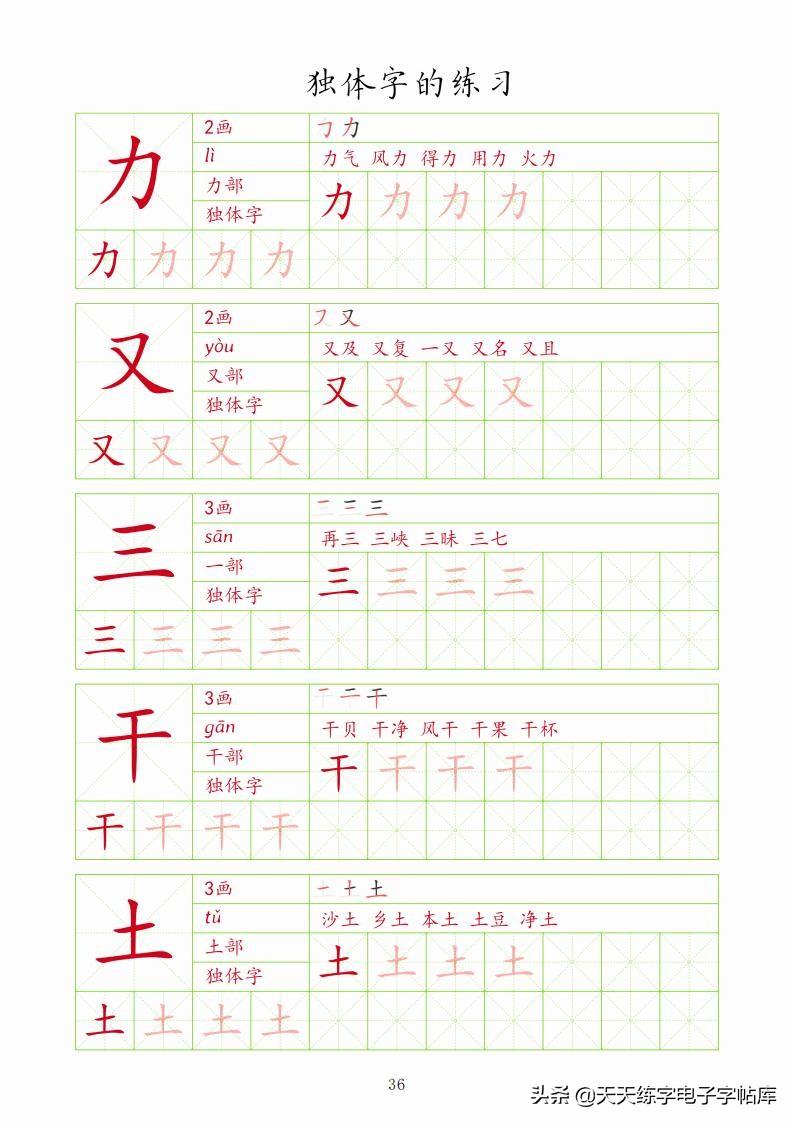 独体字的练习
力 2画 ㇆力
lì 力气 风力 得力 用力 火力
力部 力 力 力 力
独体字
力 力 力 力
又 2画 ㇇又
yòu 又及 又复 一又 又名 又且
又部 又 又 又 又
独体字
又 又 又 又
三 3画 三三三
sān 再三 三峡 三昧 三七
一部 三 三 三 三
独体字
三 三 三 三
干 3画 干干干
gān 干贝 干净 风干 干果 干杯
干部 干 干 干 干
独体字
干 干 干 干
土 3画 一十土
tǔ 沙土 乡土 本土 土豆 净土
土部 土 土 土 土
独体字
土 土 土 土
36
头条 @天天练字电子字帖库